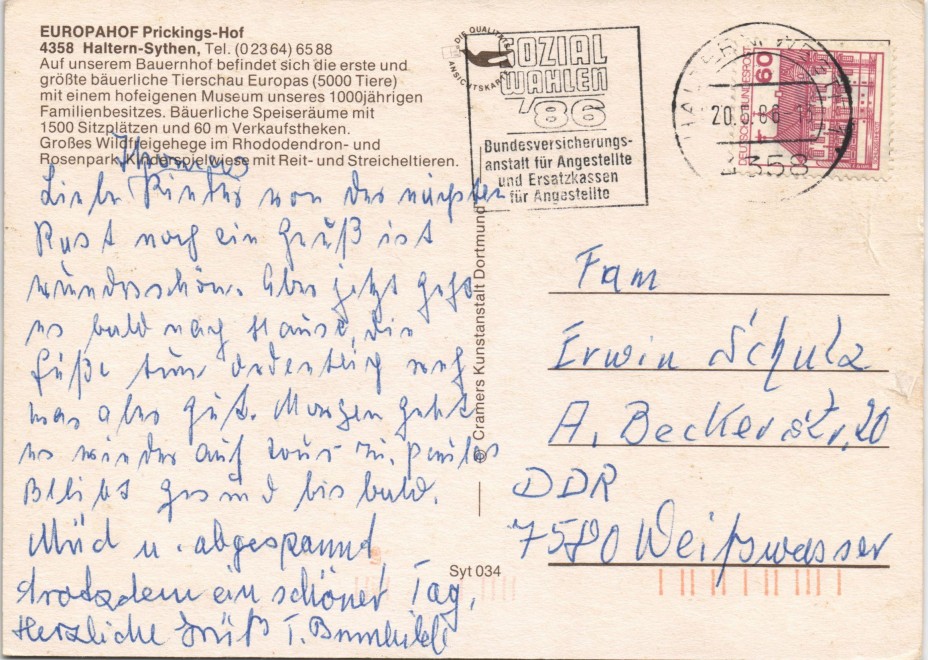 EUROPAHOF Prickings-Hof
4358 Haltern-Sythen, Tel. (0 23 64) 65 88
Auf unserem Bauernhof befindet sich die erste und
größte bäuerliche Tierschau Europas (5000 Tiere)
mit einem hofeigenen Museum unseres 1000jährigen
Familienbesitzes. Bäuerliche Speiseräume mit
1500 Sitzplätzen und 60 m Verkaufstheken.
Großes Wildfreigehege im Rhododendron- und
Rosenpark. Kinderspielwiese mit Reit- und Streicheltieren.
Liebe Kinder von der nächsten
Rast noch ein Gruß ist
wunderschön. Aber jetzt gehts
es bald nach Hause, die
Füße tun ordentlich weh
was aber gut. Morgen geht
es wieder auf
Bleibt gesund bis bald.
Müd u. abgespannt
trotzdem ein schöner Tag,
Herzliche Grüß T. Brunhild
© Cramers Kunstanstalt Dortmund
Syt 034
DIE QUALITÄTS
ANSICHTSKARTE
SOZIAL
WAHLEN
'86
Bundesversicherungs-
anstalt für Angestellte
und Ersatzkassen
für Angestellte
20.5.86-16
4358
DEUTSCHE BUNDESPOST
60
Fam
Erwin Schulz
A. Beckerstr. 20
DDR
7580 Weißwasser